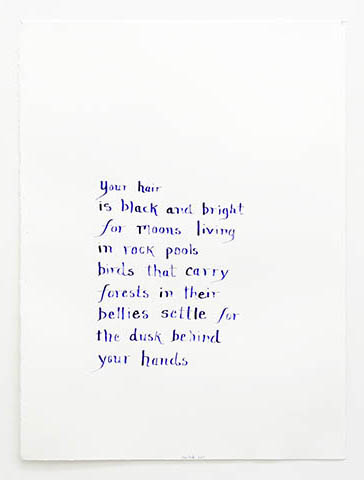 your hair
is black and bright
for moons living
in rock pools
birds that carry
forests in their
bellies settle for
the dusk behind
your hands